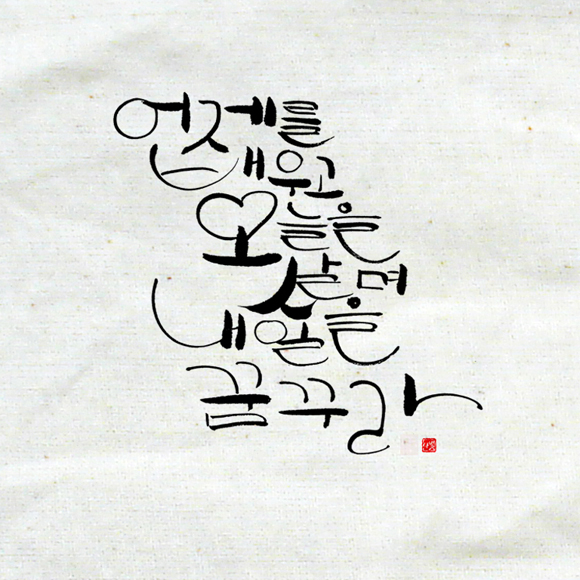 어제를
배우고
오늘을
살며
내일을
꿈꾸라